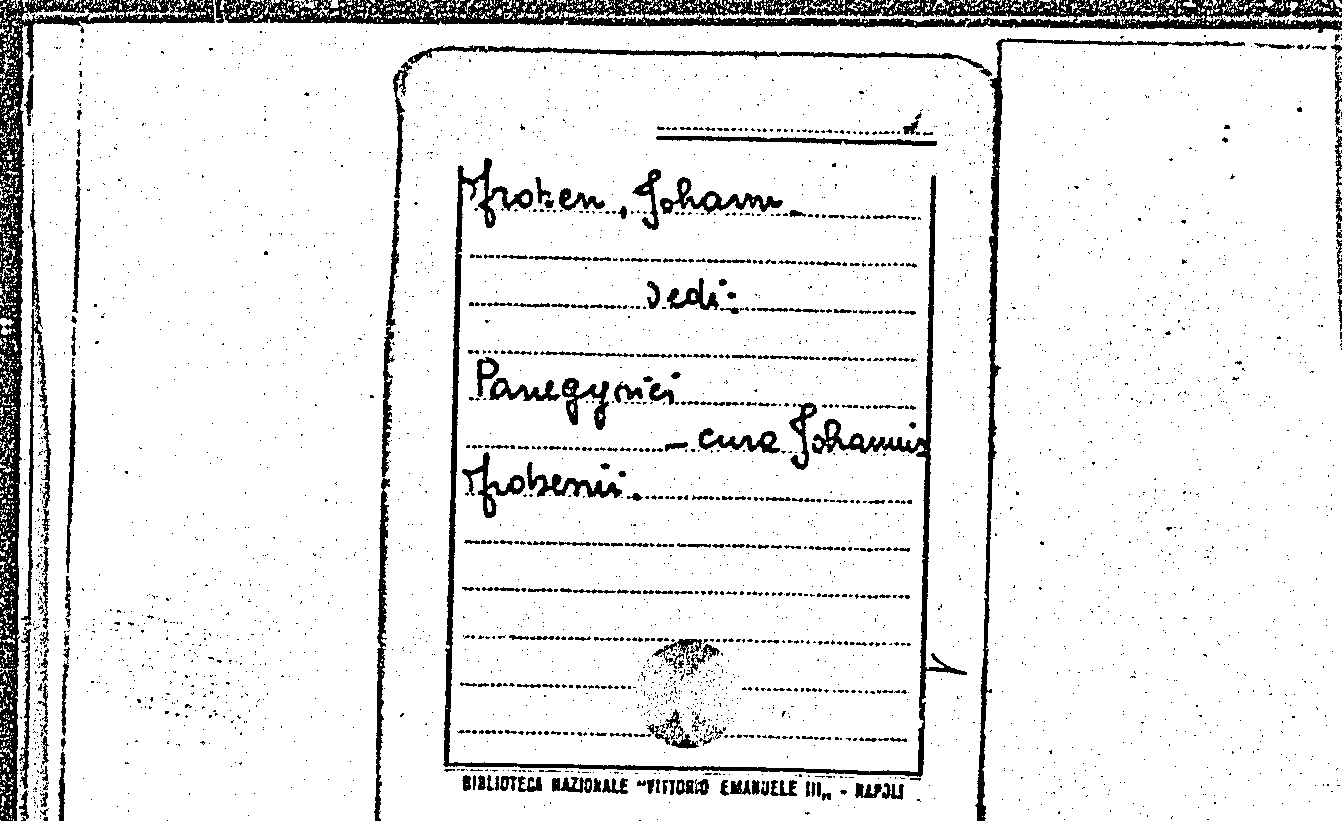 Froben, Johann.
Vedi:
Panegyrici
– cura Johannis
Frobenii.
BIBLIOTECA NAZIONALE "VITTORIO EMANUELE III„ - NAPOLI